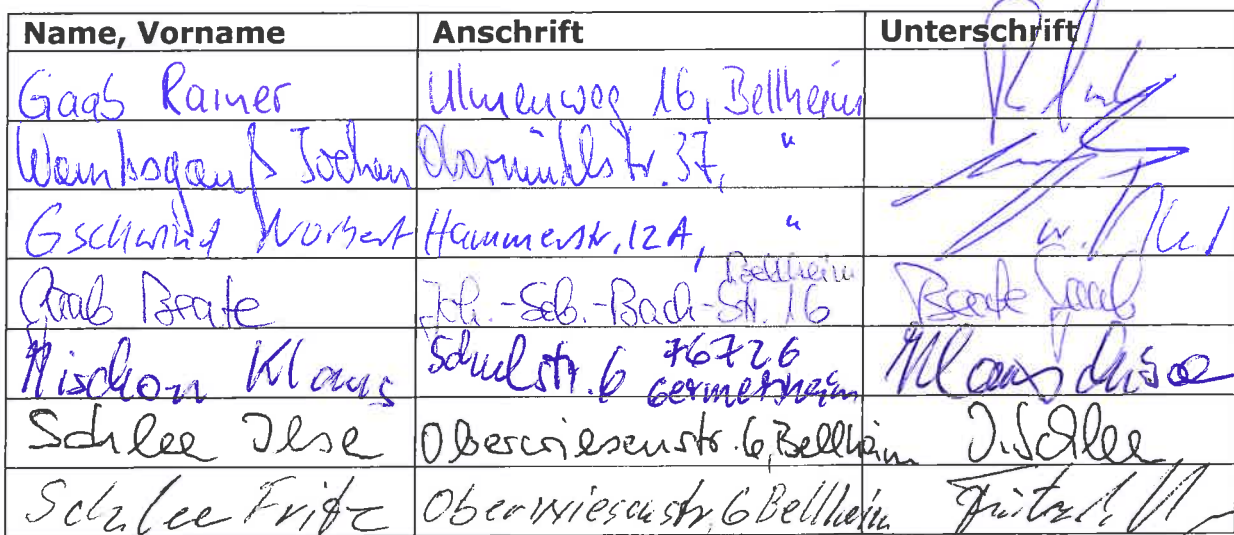 Name, Vorname Anschrift Unterschrift
Gaab Rainer Ulmenweg 16, Bellheim
Wambsganß Jochen Obermühlstr. 37, "
Gschwind Norbert Hammerstr. 12A, "
Gaab Beate Joh.-Seb.-Bach-Str. 16 Bellheim Beate Gaab
Mischon Klaus Schulstr. 6 76726 Germersheim
Schlee Ilse Oberwiesenstr. 6, Bellheim I. Schlee
Schlee Fritz Oberwiesenstr. 6 Bellheim Fritz